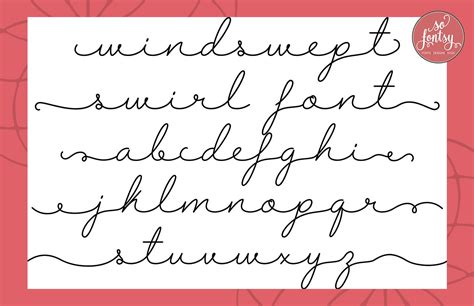 so
fontsy
windswept
swirl font
abcdefghi
jklmnopqr
stuvwxyz